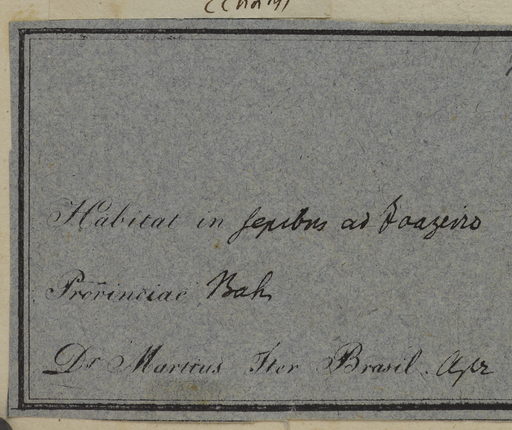 Habitat in sepibus ad Joazeiro
Provinciae Bah
Dr Martius Iter Brasil. Apr